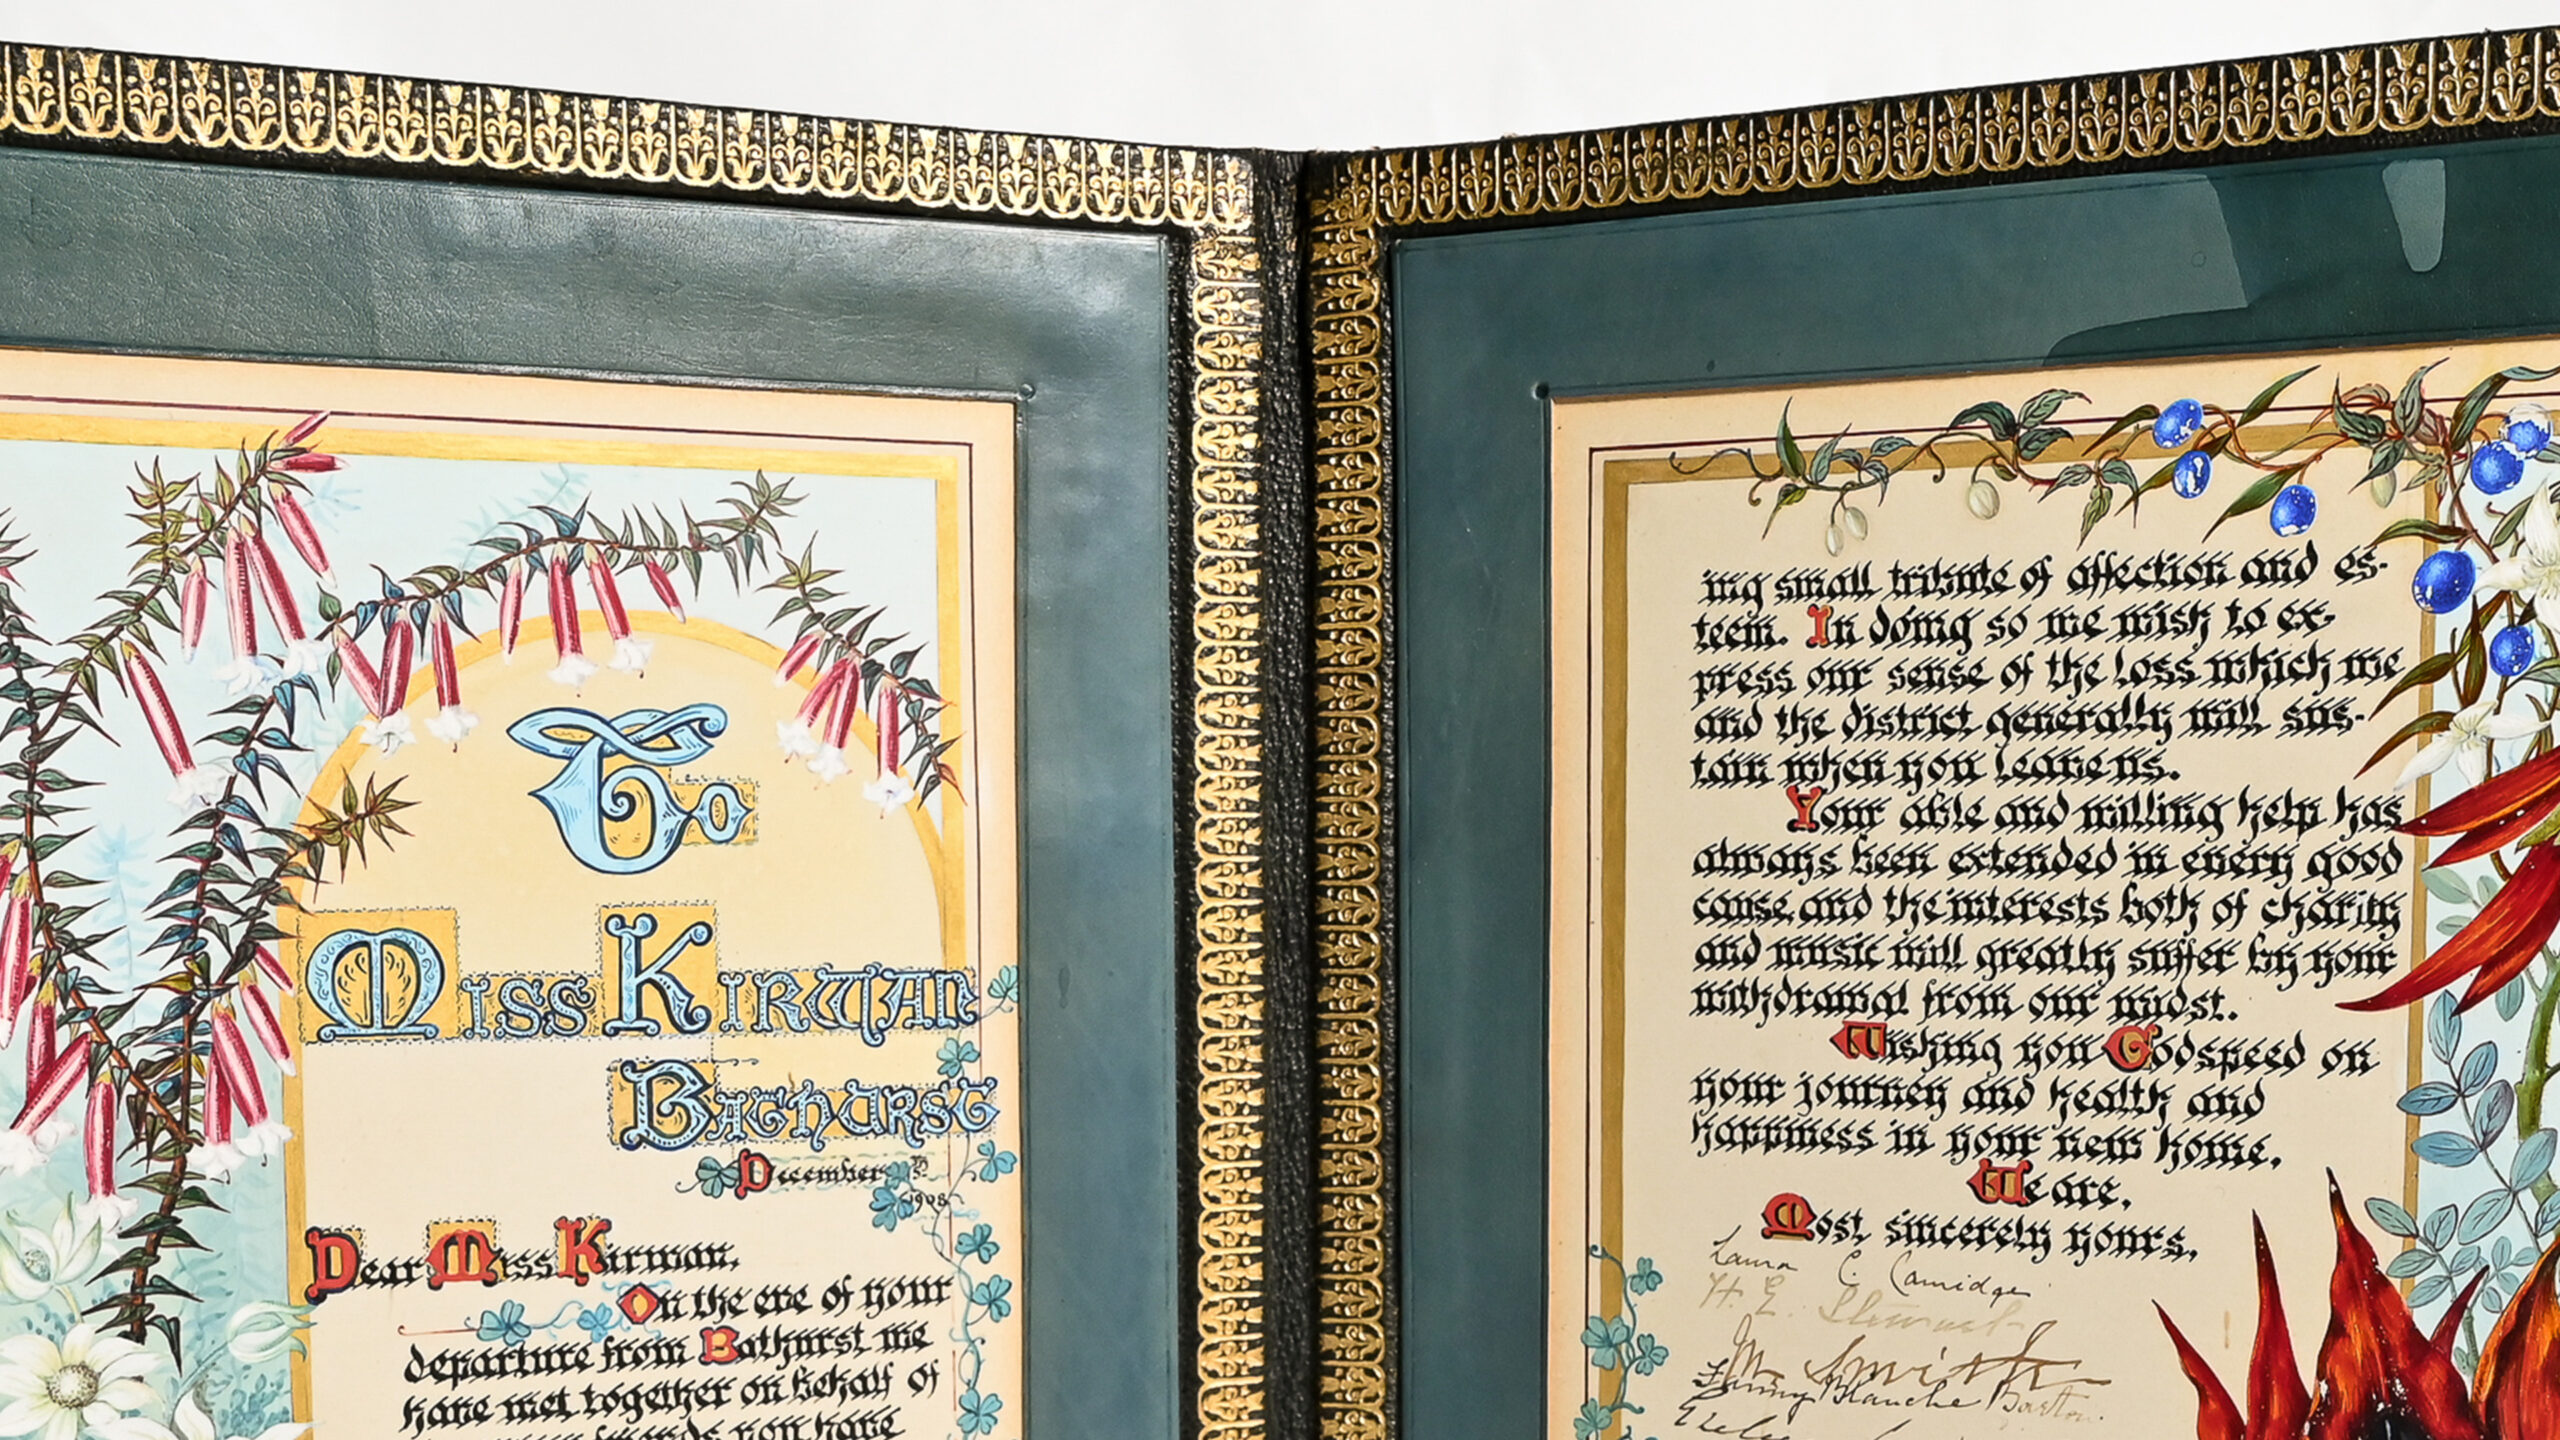 To
Miss Kirwan
Bathurst
December
1908
Dear Miss Kirwan,
On the eve of your
departure from Bathurst we
have met together on behalf of
you have
ing small tribute of affection and es-
teem. In doing so we wish to ex-
press our sense of the loss which we
and the district generally will sus-
tain when you leave us.
Your able and willing help has
always been extended in every good
cause, and the interests both of charity
and music will greatly suffer by your
withdrawal from our midst.
Wishing you Godspeed on
your journey and health and
happiness in your new home,
We are,
Most sincerely yours,
Laura C. Camidge
H. E. Stewart
M. Smith
Fanny Blanche Barton.